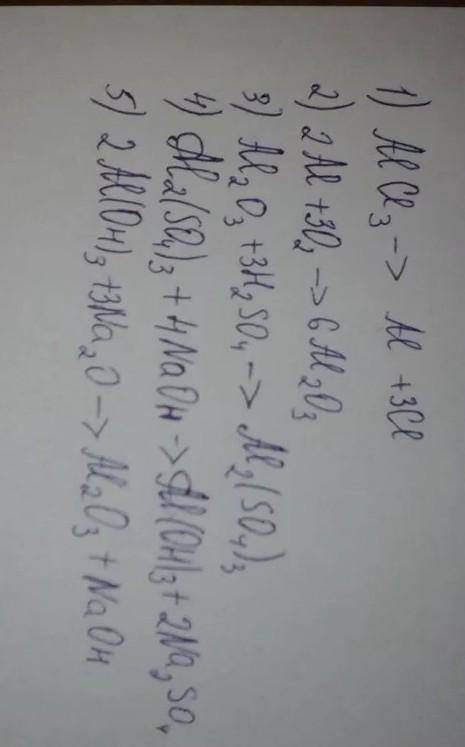 1) AlCl₃ -> Al + 3Cl
2) 2Al + 3O₂ -> 6Al₂O₃
3) Al₂O₃ + 3H₂SO₄ -> Al₂(SO₄)₃
4) Al₂(SO₄)₃ + 4NaOH -> Al(OH)₃ + 2Na₂SO₄
5) 2Al(OH)₃ + 3Na₂O -> Al₂O₃ + NaOH